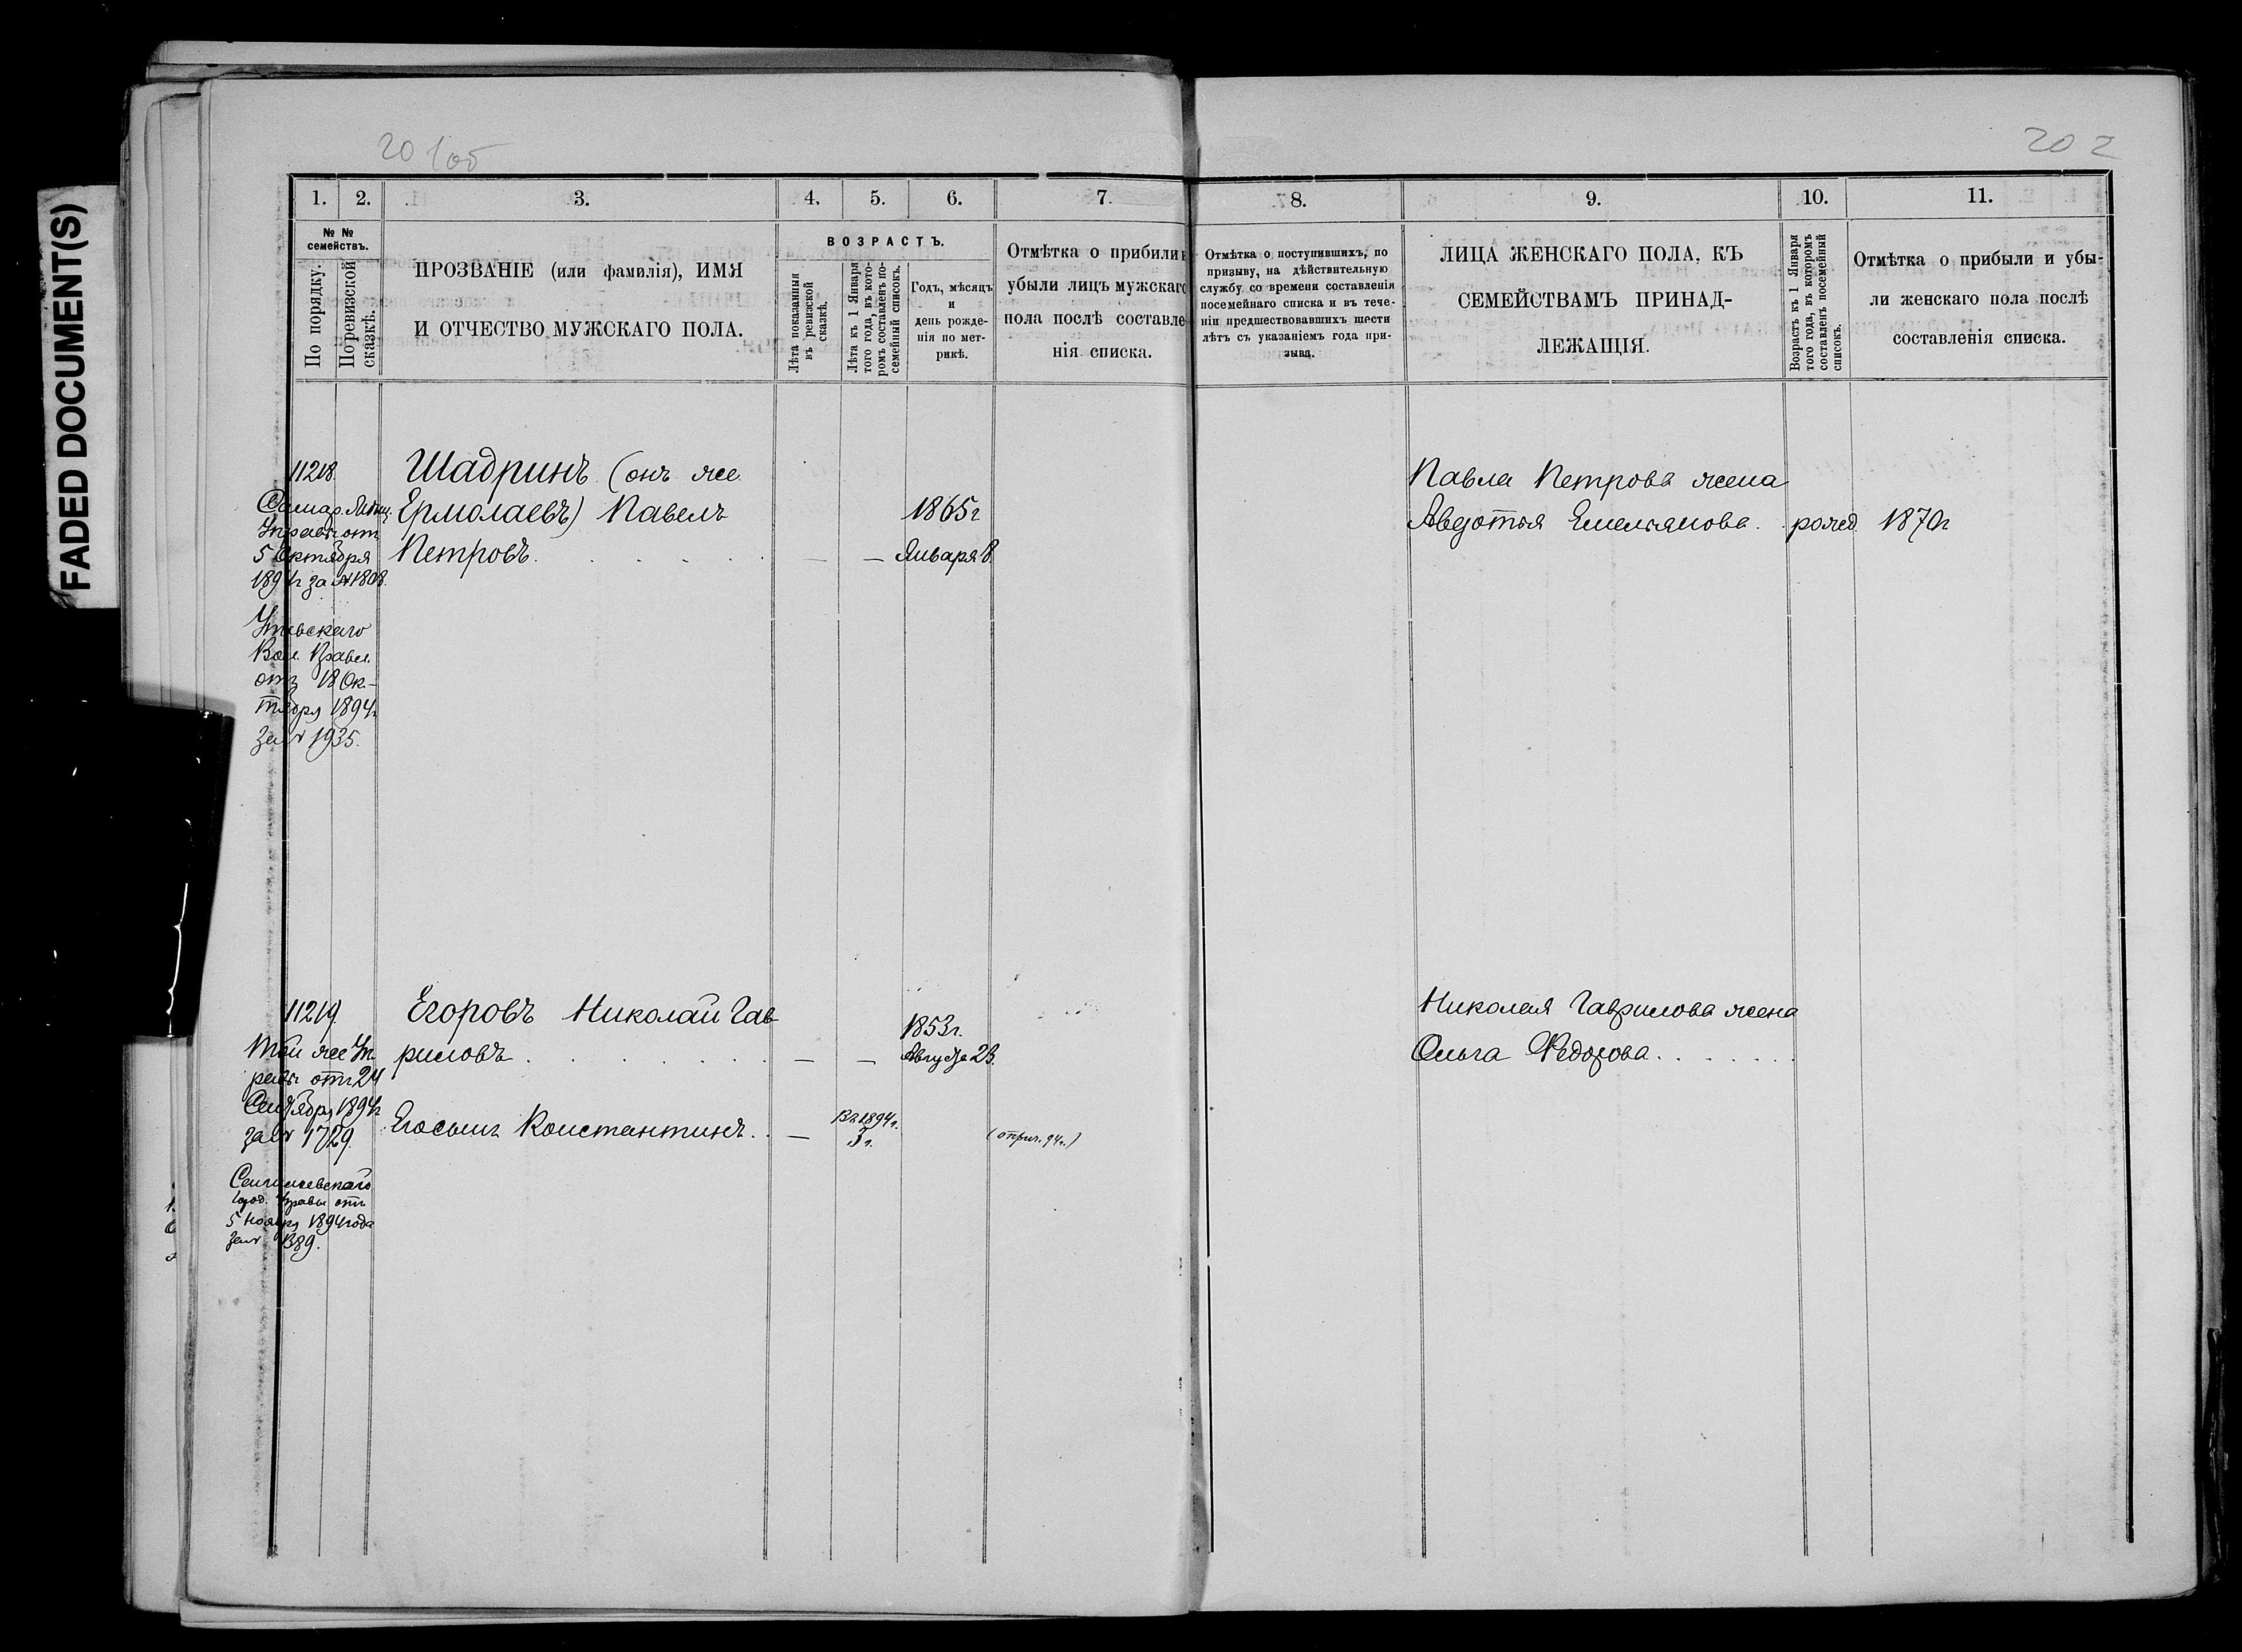 FADED DOCUMENT(S)
201об
202
1.
2.
3.
4.
5.
6.
7.
8.
9.
10.
11.
№ №
семействъ.
По порядку.
По ревизской
сказкѣ.
ПРОЗВАНІЕ (или фамилія), ИМЯ
И ОТЧЕСТВО МУЖСКАГО ПОЛА.
ВОЗРАСТЪ.
Лѣта показанныя
въ ревизской
сказкѣ.
Лѣта къ 1 Января
того года, въ кото-
ромъ составленъ по-
семейный списокъ.
Годъ, мѣсяцъ
и
день рожде-
нія по мет-
рикѣ.
Отмѣтка о прибыли и
убыли лицъ мужскаго
пола послѣ составле-
нія списка.
Отмѣтка о поступившихъ, по
призыву, на дѣйствительную
службу со времени составленія
посемейнаго списка и въ тече-
ніи предшествовавшихъ шести
лѣтъ съ указаніемъ года при-
зыва.
ЛИЦА ЖЕНСКАГО ПОЛА, КЪ
СЕМЕЙСТВАМЪ ПРИНАД-
ЛЕЖАЩІЯ.
Возрастъ къ 1 Января
того года, въ которомъ
составленъ посемейный
списокъ.
Отмѣтка о прибыли и убы-
ли женскаго пола послѣ
составленія списка.
11218.
Самар. Мѣщ.
Управы отъ
5 Октября
1894г за № 1808.
Утевскаго
Вол. Правл.
отъ 18 Ок-
тября 1894г
за № 1935.
Шадринъ (онъ же
Ермолаевъ) Павелъ
Петровъ.
— —
1865г
Января 8.
Павла Петрова жена
Авдотья Емельянова. рожд. 1870г
11219.
Той же Уп-
равы отъ 24
Сентября 1894г
за № 1729.
Сенгилеевскаго
Город. Управы отъ
5 Ноября 1894 года
за № 1389.
Егоровъ Николай Гав-
риловъ
— —
1853г.
Августа 23.
Его сынъ Константинъ
—
Въ 1894г.
3 г.
Николая Гаврилова жена
Ольга Федорова